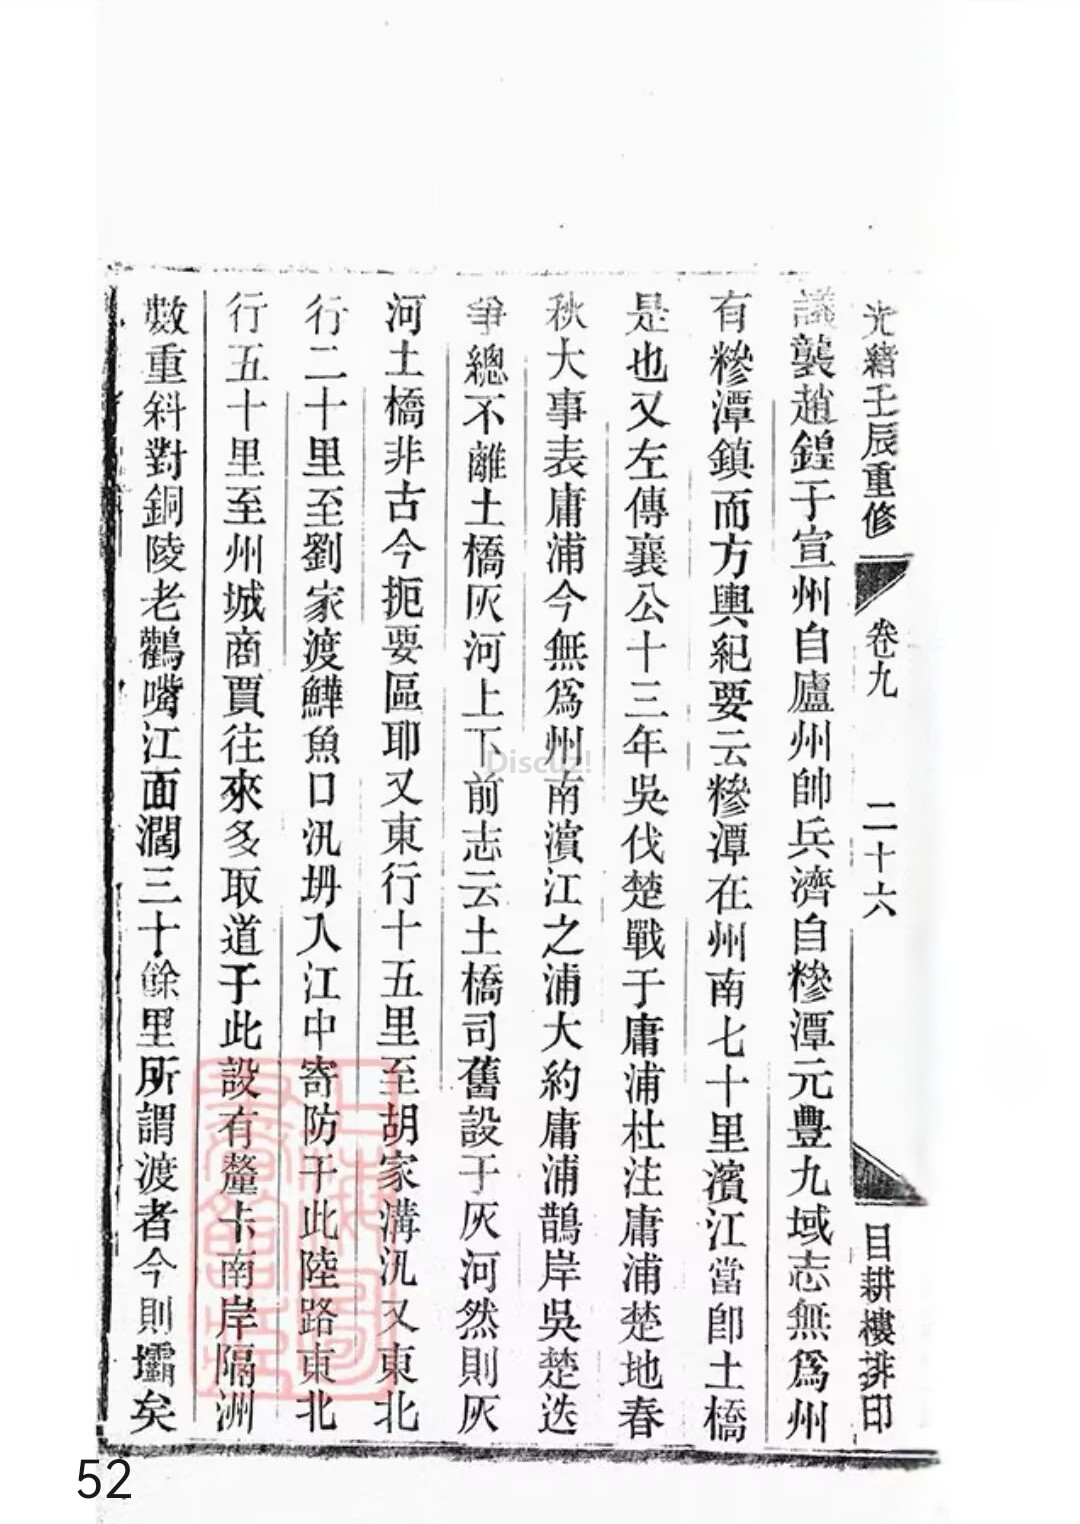 光緒壬辰重修
卷九
二十六
目耕樓排印
議襲趙鍠于宣州自廬州帥兵濟自糝潭元豐九域志無爲州
有糝潭鎮而方輿紀要云糝潭在州南七十里濱江當卽土橋
是也又左傳襄公十三年吳伐楚戰于庸浦杜注庸浦楚地春
秋大事表庸浦今無爲州南濱江之浦大約庸浦鵲岸吳楚迭
爭總不離土橋灰河上下前志云土橋司舊設于灰河然則灰
河土橋非古今扼要區耶又東行十五里至胡家溝汛又東北
行二十里至劉家渡鱓魚口汛坍入江中寄防于此陸路東北
行五十里至州城商賈往來多取道于此設有釐卡南岸隔洲
數重斜對銅陵老鸛嘴江面濶三十餘里所謂渡者今則壩矣
上海圖
書館藏
Discuz!
52